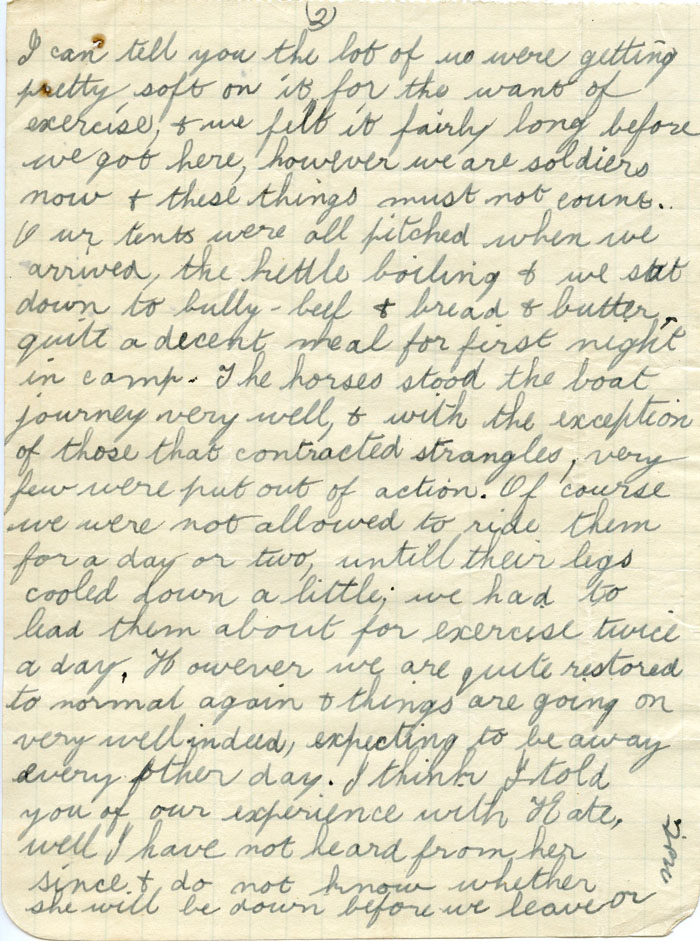 (2)
I can tell you the lot of us were getting
pretty soft on it for the want of
exercise, & we felt it fairly long before
we got here, however we are soldiers
now & these things must not count.
Our tents were all pitched when we
arrived, the kettle boiling & we sat
down to bully-beef & bread & butter,
quite a decent meal for first night
in camp. The horses stood the boat
journey very well, & with the exception
of those that contracted strangles, very
few were put out of action. Of course
we were not allowed to ride them
for a day or two, untill their legs
cooled down a little; we had to
lead them about for exercise twice
a day. However we are quite restored
to normal again & things are going on
very well indeed, expecting to be away
every other day. I think I told
you of our experience with Kate,
well I have not heard from her
since & do not know whether
she will be down before we leave or
not.